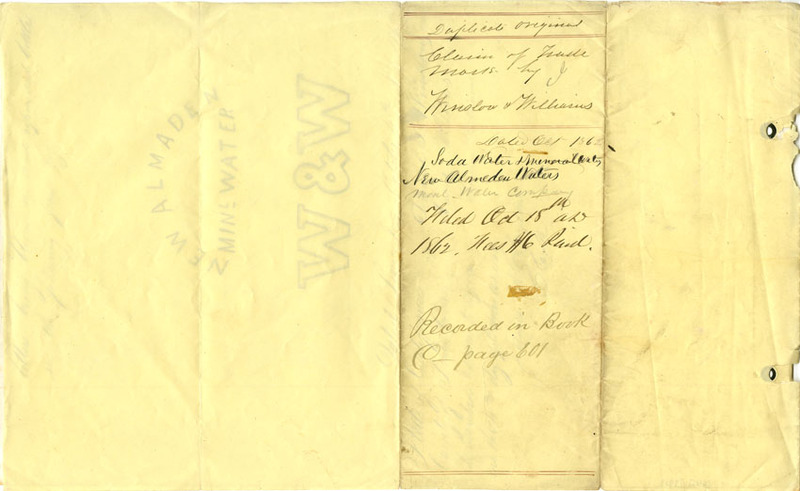 NEW ALMADEN
MINL WATER
W & W
Duplicate original
Claim of Trade
Mark by
Winslow & Williams
Date Oct 1862
Soda Water & mineral water
New Almeden Waters
Water Company
Filed Oct 18th AD
1862, Fees $6 Paid.
Recorded in Book
O page 601